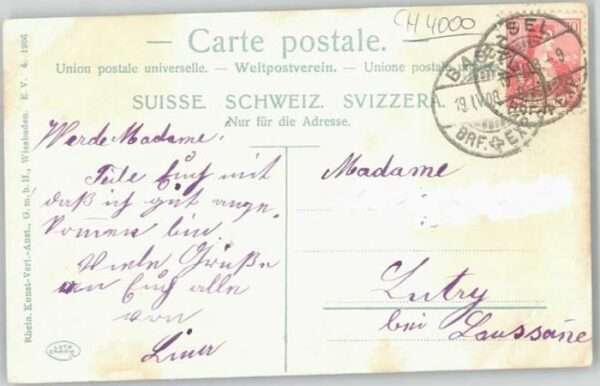 CH 4000
Carte postale.
Union postale universelle. – Weltpostverein. – Unione postale
SUISSE. SCHWEIZ. SVIZZERA.
Nur für die Adresse.
BASEL
19.IV.08
BRF. EXP.
Werde Madame.
Teile Euch mit
daß ich gut ange-
kommen bin
Viele Grüße
an Euch alle
von
Madame
Lutry
bei Laussane
Rhein. Kunst-Verl.-Anst., G. m. b. H., Wiesbaden. E. V. 4. 1906